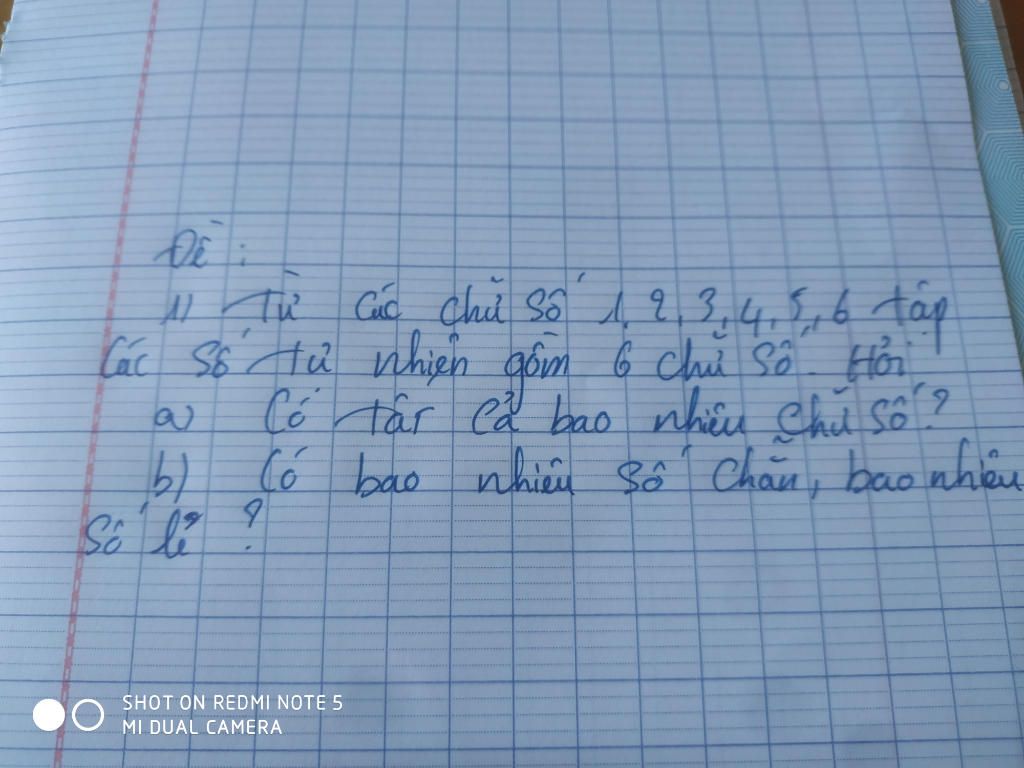 Đề :
1) Từ các chữ số 1, 2, 3, 4, 5, 6 tập
Các số tử nhiên gồm 6 chữ số. Hỏi
a) Có tất cả bao nhiêu chữ số ?
b) Có bao nhiêu số chẵn, bao nhiêu
số lẻ ?
SHOT ON REDMI NOTE 5
MI DUAL CAMERA